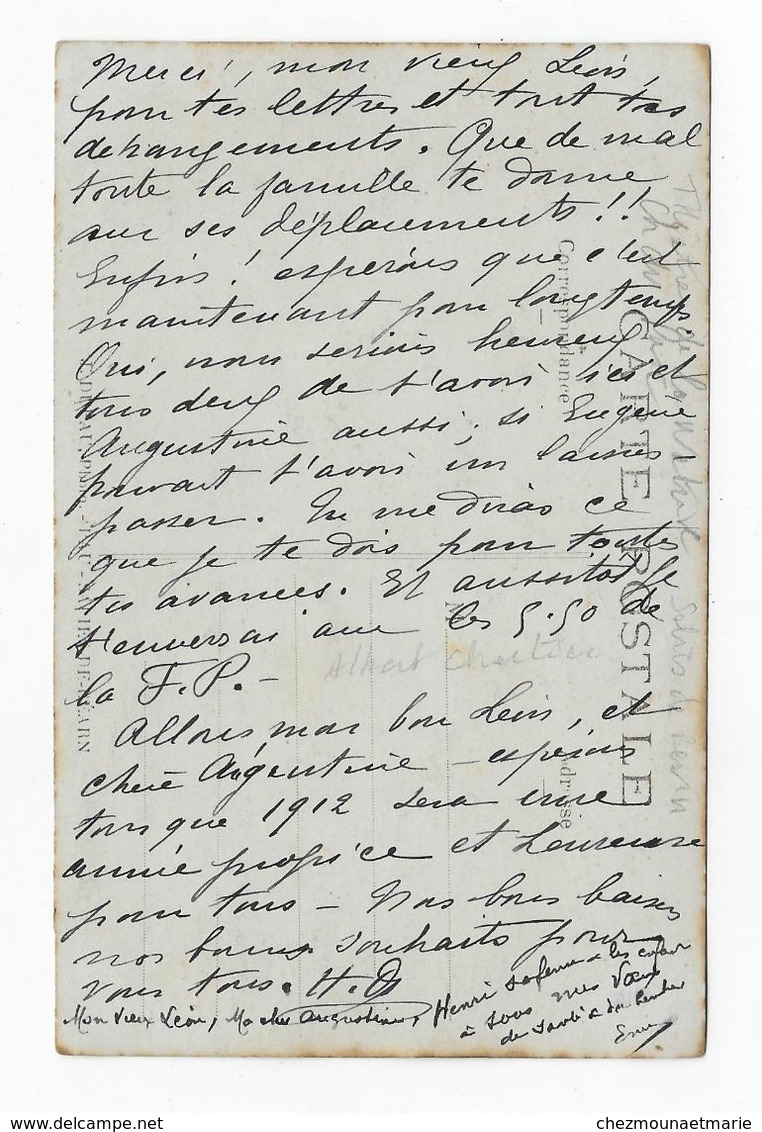 Merci, mon vieux Léon,
pour tes lettres et tout tes
dérangements. Que de mal
toute la famille te donne
avec ses déplacements!!
Enfin! espérons que c'est
maintenant pour longtemps.
Oui, nous serions heureux
tous deux de t'avoir ici et
Augustine aussi, si Eugène
pouvait t'avoir un laissez-
passer. Tu me diras ce
que je te dois pour toutes
tes avances. Et aussitôt je
t'enverrai avec les 5.50 de
la F.P. -
Allons mon bon Léon, et
chère Augustine - espérons
tous que 1912 sera une
année propice et heureuse
pour tous - Nos bons baisers
nos bons souhaits pour
vous tous. H.
Mon Vieux Léon, Ma chère Augustine, Henri sa femme & les enfants
à tous mes Vœux
de Santé & de bonheur
CARTE POSTALE
Correspondance
Adresse
Albert Chartier
chezmounaetmarie